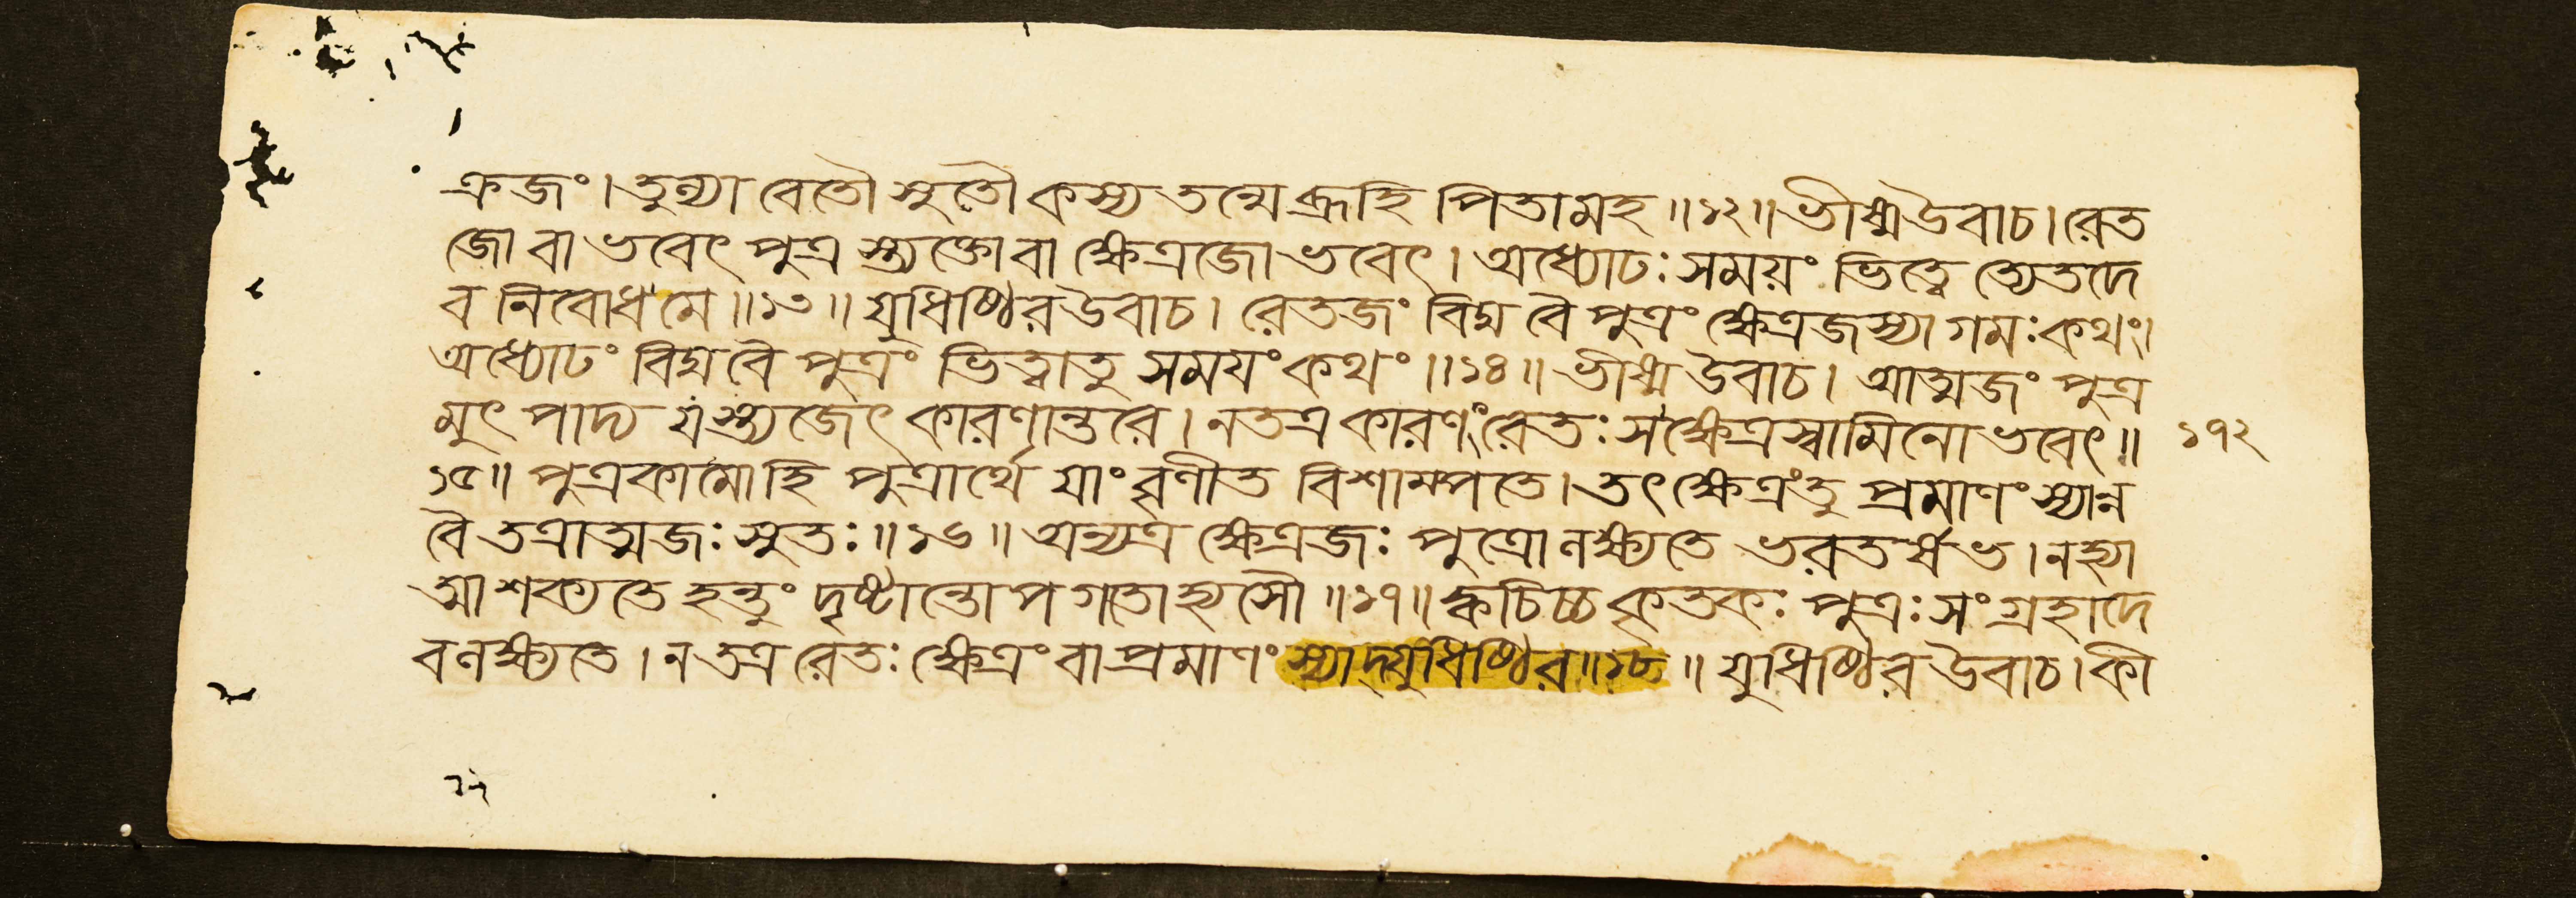 ত্রজং। তুল্যাবেতৌ সুতৌ কস্য তন্মে ব্রূহি পিতামহ॥১২॥ ভীষ্মউবাচ। রেত
জো বা ভবেৎ পুত্র স্ত্যক্তো বা ক্ষেত্রজো ভবেৎ। অধ্যোঢঃ সময়ং ভিত্ত্বে ত্যেতদে
ব নিবোধ মে॥১৩॥ যুধিষ্ঠির উবাচ। রেতজং বিদ্ম বৈ পুত্রং ক্ষেত্রজস্যা গমঃ কথং।
অধ্যোঢং বিদ্ম বৈ পুত্রং ভিত্ত্বা তু সময়ং কথং॥১৪॥ ভীষ্ম উবাচ। আত্মজং পুত্র
মুৎ পাদ্য যস্ত্যজেৎ কারণান্তরে। ন তত্র কারণং রেতঃ স ক্ষেত্রস্বামিনো ভবেৎ॥ ১৭২
১৫॥ পুত্রকামো হি পুত্রার্থে যাং বৃণীত বিশাম্পতে। তৎ ক্ষেত্রং তু প্রমাণং স্যান্ন
বৈ তত্রাত্মজঃ সুতঃ॥১৬॥ অন্যত্র ক্ষেত্রজঃ পুত্রো লক্ষ্যতে ভরতর্ষভ। ন হ্যা
ত্মা শক্যতে হন্তুং দৃষ্টান্তোপগতো হ্যসৌ॥১৭॥ ক্বচিচ্চ কৃতকঃ পুত্রঃ সংগ্রহাদে
ব লক্ষ্যতে। ন তত্র রেতঃ ক্ষেত্রং বা প্রমাণং স্যাদ্যুধিষ্ঠির॥১৮॥ যুধিষ্ঠির উবাচ। কী